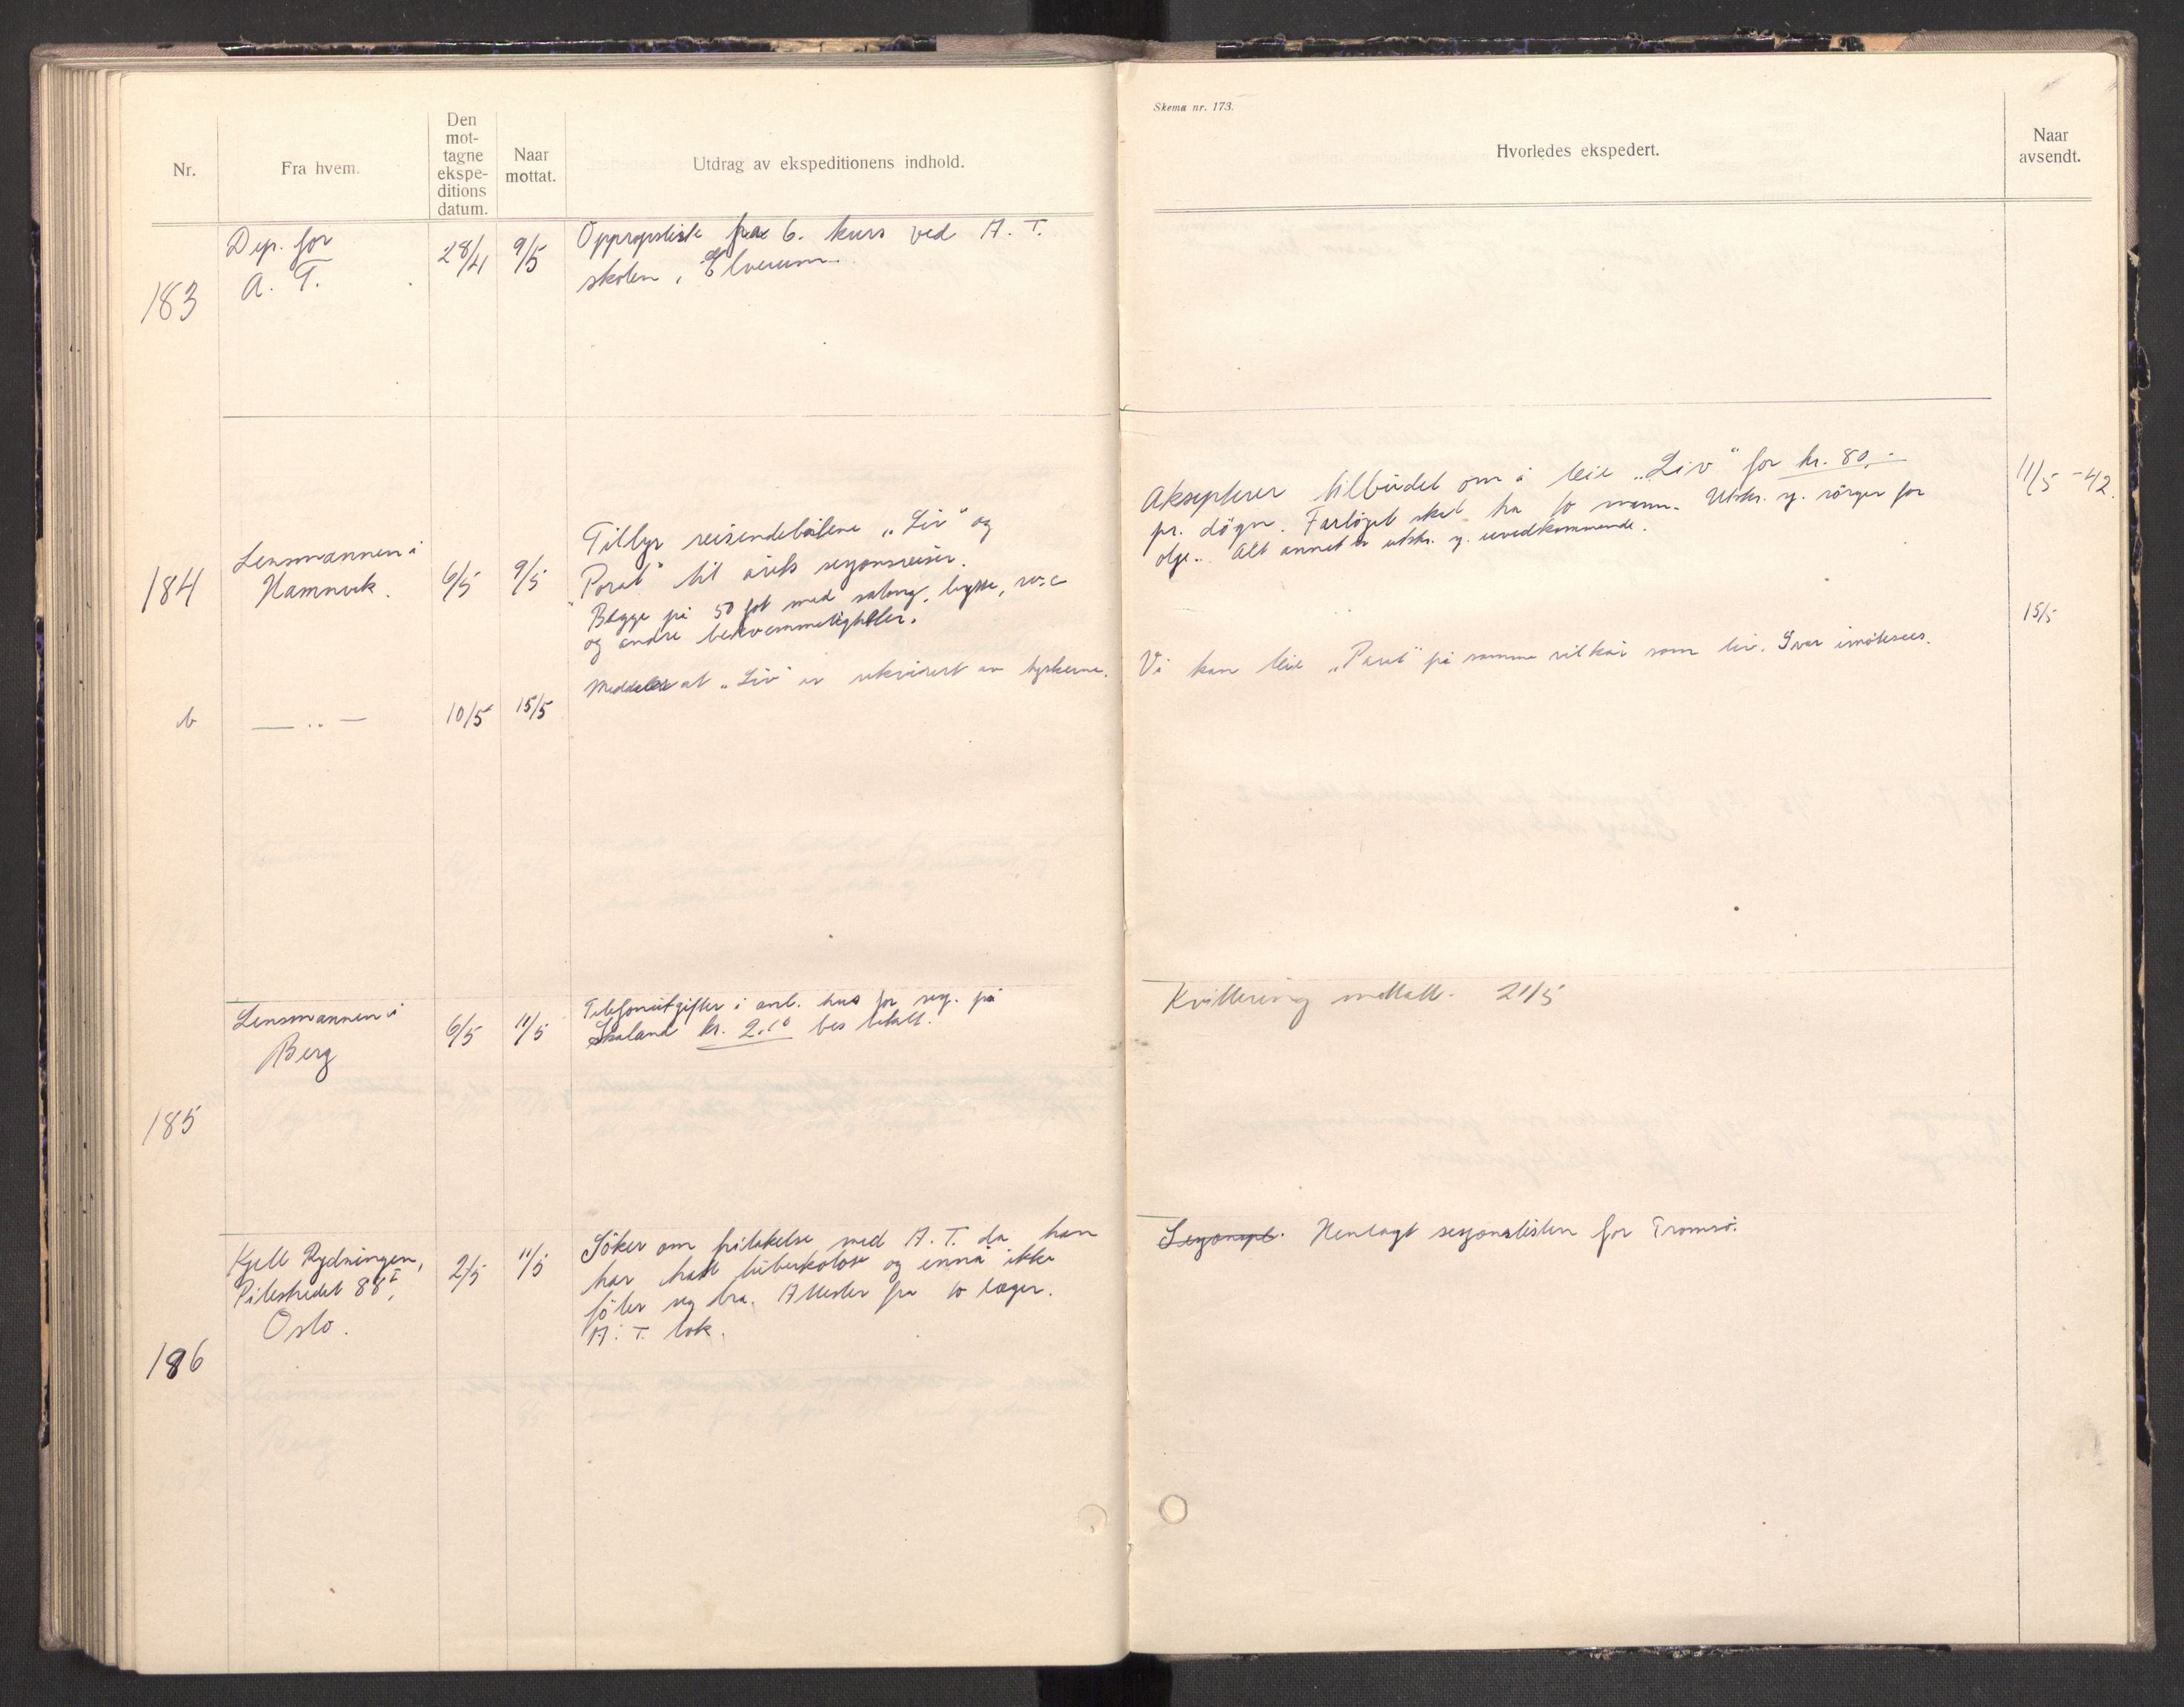 Nr.
Fra hvem.
Den
mot-
tagne
ekspe-
ditions
datum.
Naar
mottat.
Utdrag av ekspeditionens indhold.
183
Dep. for
A. T.
28/4
9/5
Opropsliste fra 6. kurs ved A. T.
skolen i Elverum.
184
Lensmannen i
Hamnvik.
6/5
9/5
Tilbyr reisendebåtene "Liv" og
"Porat" til årets sesjonsreiser.
Begge på 50 fot med salong, bysse, w.c
og andre bekvemmeligheter.
b
— .. —
10/5
15/5
Meddeler at "Liv" er rekvirert av tyskerne.
185
Lensmannen i
Berg
6/5
11/5
Telefonutgifter i anl. hus for reg. på
Skaland kr. 2.10 bes betalt.
186
Kjell Rydningen,
Pilestredet 88 I,
Oslo.
2/5
11/5
Söker om fritakelse med A. T. da han
har hatt tuberkolose og ennå ikke
föler seg bra. Attester fra to læger.
A. T. bok.
Skema nr. 173.
Hvorledes ekspedert.
Naar
avsendt.
Aksepterer tilbudet om å leie "Liv" for kr. 80,-
pr. dögn. Fartöjet skal ha to mann. Utskr. sj. sörger for
olje. Alt annet er utskr. sj. uvedkommende.
11/5 -42.
Vi kan leie "Porat" på samme vilkår som Liv. Svar imötesees.
15/5
Kvittering mottatt. 21/5
Henlagt sesjonslisten for Tromsö.